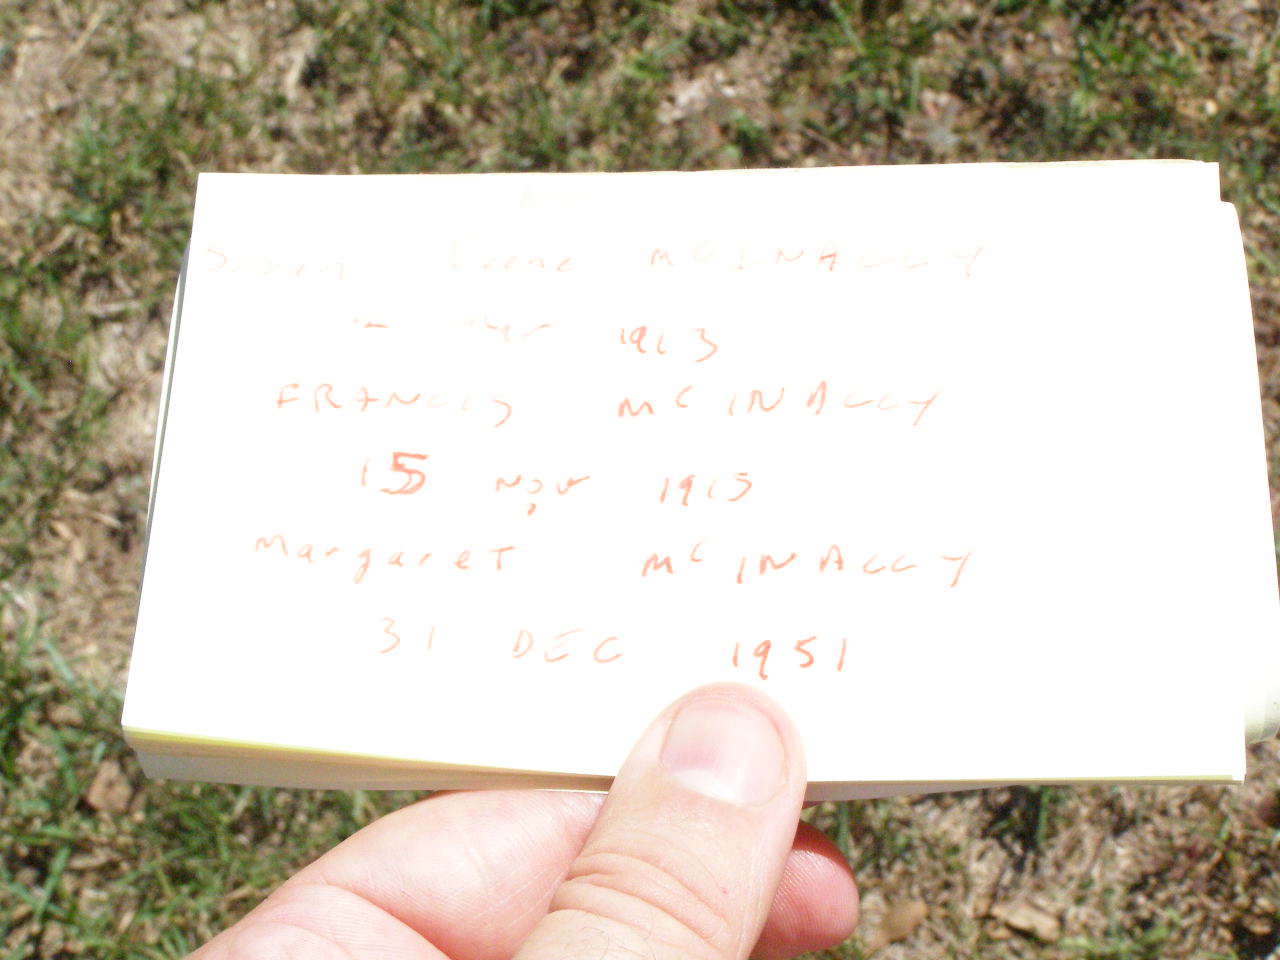 Susan Irene McINALLY
Mar 1913
FRANCIS McINALLY
15 Nov 1915
Margaret McINALLY
31 DEC 1951